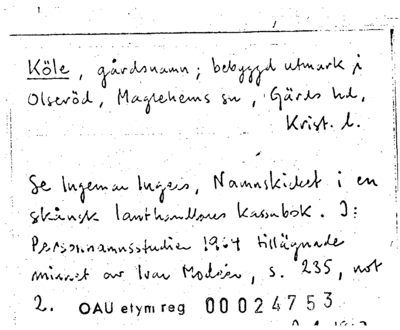 Köle, gårdsnamn; bebyggd utmark i
Olseröd, Maglehems sn, Gärds hd,
Krist. l.
Se Ingemar Ingers, Namnskicket i en
skånsk lanthandlares kassabok. I:
Personnamnsstudier 1964 tillägnade
minnet av Ivar Modéer, s. 235, not
2. OAU etym reg 00024753